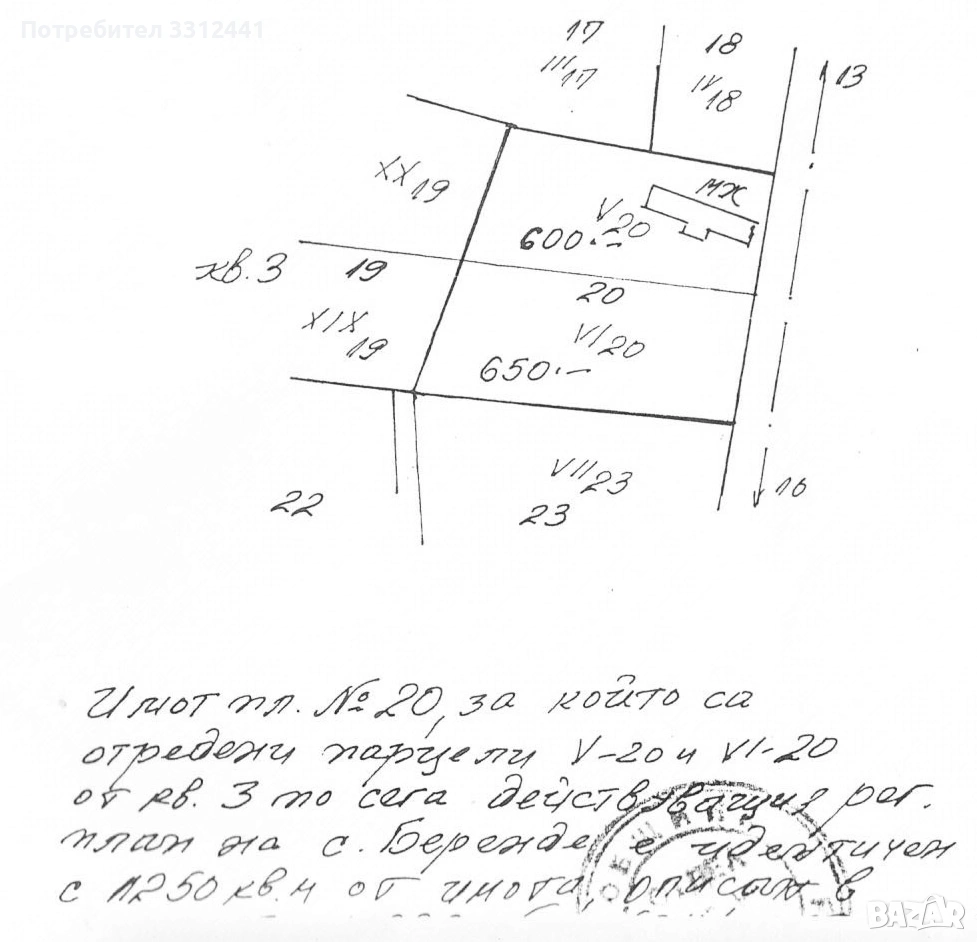 Потребител 3312441
17
18
III 17
IV 18
13
XX 19
МЖ
V 20
600.-
кв. 3
19
20
XIX 19
VI 20
650.-
VII 23
16
22
23
Имот пл. № 20, за който са
отредени парцели V-20 и VI-20
от кв. 3 по сега действуващия рег.
план на с. Беренде е идентичен
с 1250 кв. м от имота, описан в
BAZAR